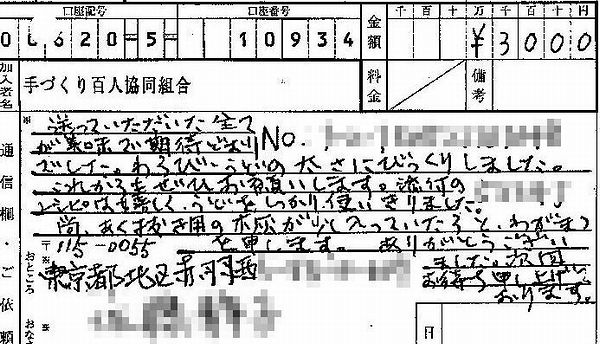 口座記号 口座番号 金額 千 百 十 万 千 百 十 円
00620-5- 10934 ¥3000
加入者名 手づくり百人協同組合 料金 備考
通信欄・ご依頼
※ 送っていただいた全て
が美味で期待どおり No.
でした。わらび・うどの太さにびっくりしました。
これからもぜひお願いします。添付の
レシピは嬉しく、うどをしっかり使いきりました。
尚、あく抜き用の木灰が少し入っていたらと、わがまま
〒115-0055 を申します。ありがとうござい
おところ 東京都北区赤羽西 ました。次回
お待ち申し上げて
おります。
おな
※
日